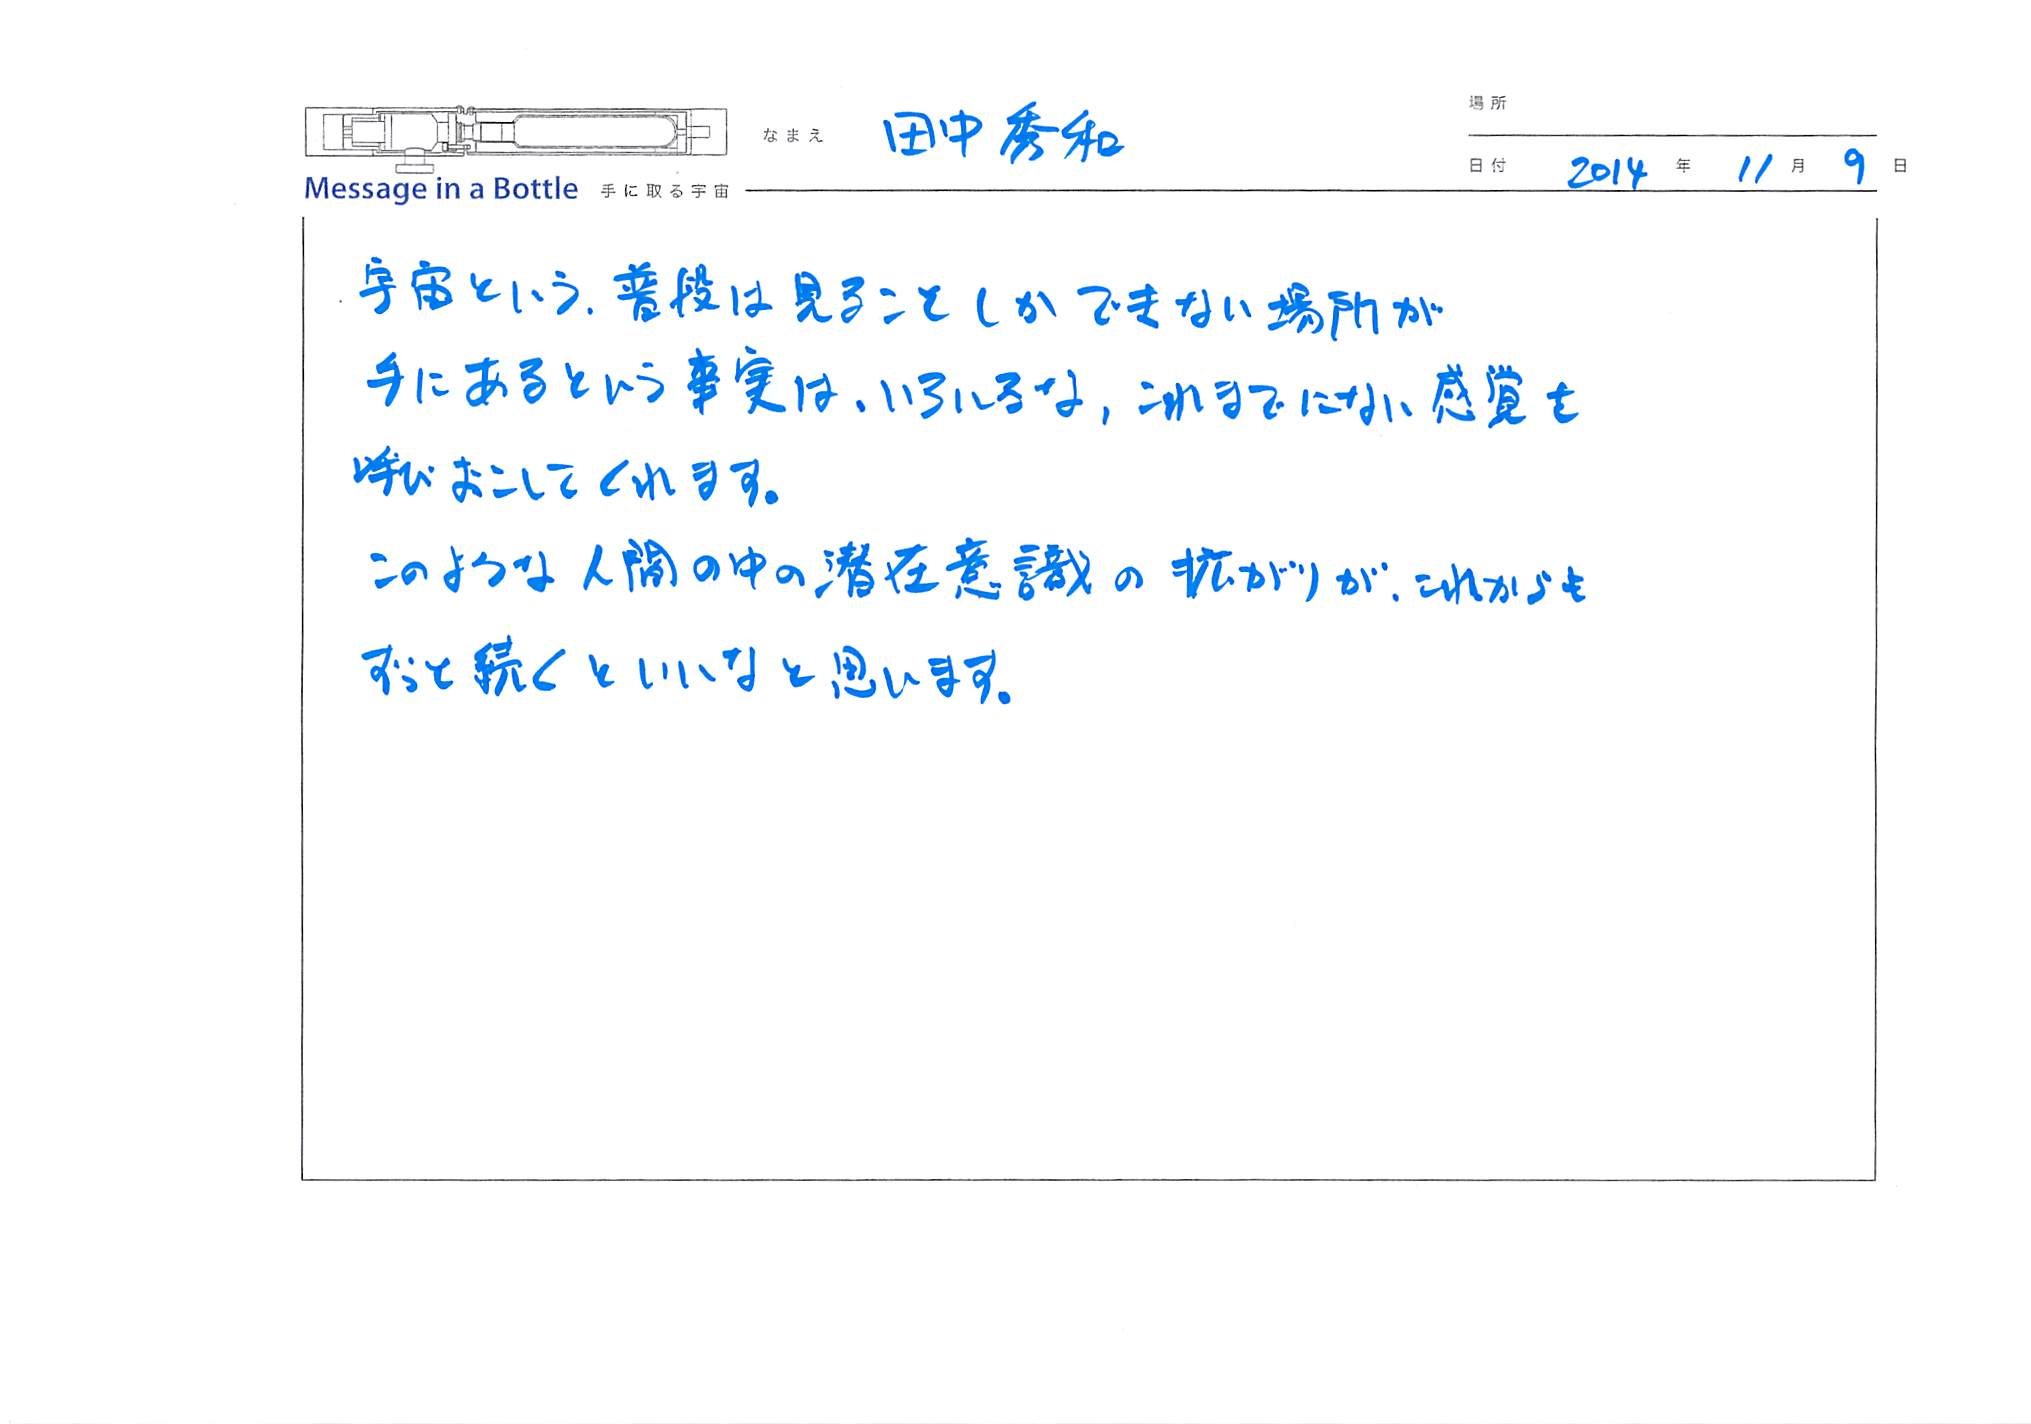 場所
なまえ 田中秀和
日付 2014 年 11 月 9 日
Message in a Bottle 手に取る宇宙
宇宙という、普段は見ることしかできない場所が
手にあるという事実は、いろいろな、これまでにない感覚を
呼びおこしてくれます。
このような人間の中の潜在意識の拡がりが、これからも
ずっと続くといいなと思います。